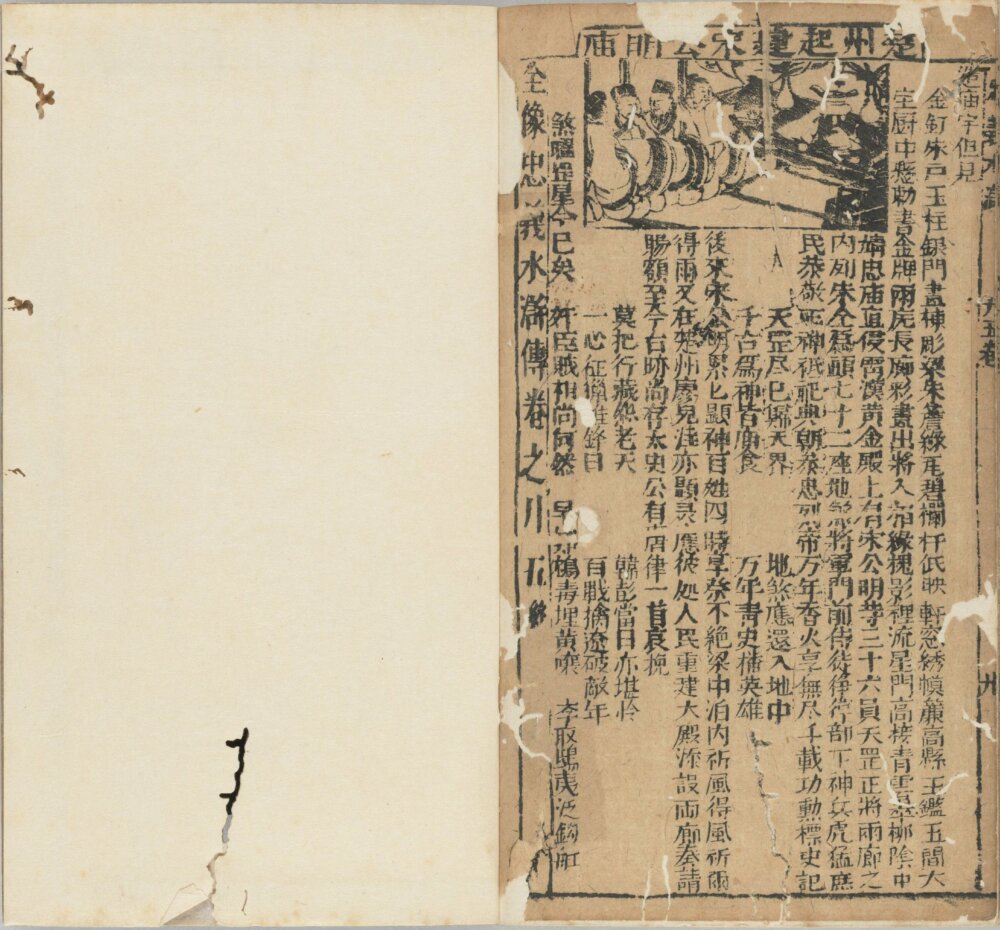 楚州起建宋公明庙
造庙宇但見
金釘朱戶玉柱銀門畫棟彫梁朱簷綠瓦碧欄杆低映軒窓綉幙簾高縣玉鑑五間大
宝厨中懸勅書金牌兩庑長廊彩畫出將入相綠槐影裡流星門高接青雲翠栁陰中
靖忠庙直侵霄漢黃金殿上有宋公明等三十六員天罡正將兩廊之
內列朱仝為頭七十二座地煞將軍門前侍從猙獰部下神兵虎猛庶
民恭敬正神祗祀典朝參忠烈帝万年香火享無尽千載功勲標史記
天罡尽已歸天界 地煞應還入地中
千古爲神皆庙食 万年青史播英雄
後來宋公明累七顯神百姓四時享祭不絶梁中泊內祈風得風祈雨
得雨又在楚州廖兒洼亦顯灵應彼処人民重建大殿添設兩廊奏請
賜額至今古跡尚存太史公有唐律一首哀挽
莫把行藏怨老天 韓彭當日亦堪怜
一心征臘摧鋒日 百戰擒遼破敵年
煞曜罡星今已矣 奸臣賊相尚刍然 早知鴆毒埋黃壤 李取鴟夷泛鈎舡
全像忠義水滸傳卷之川五終